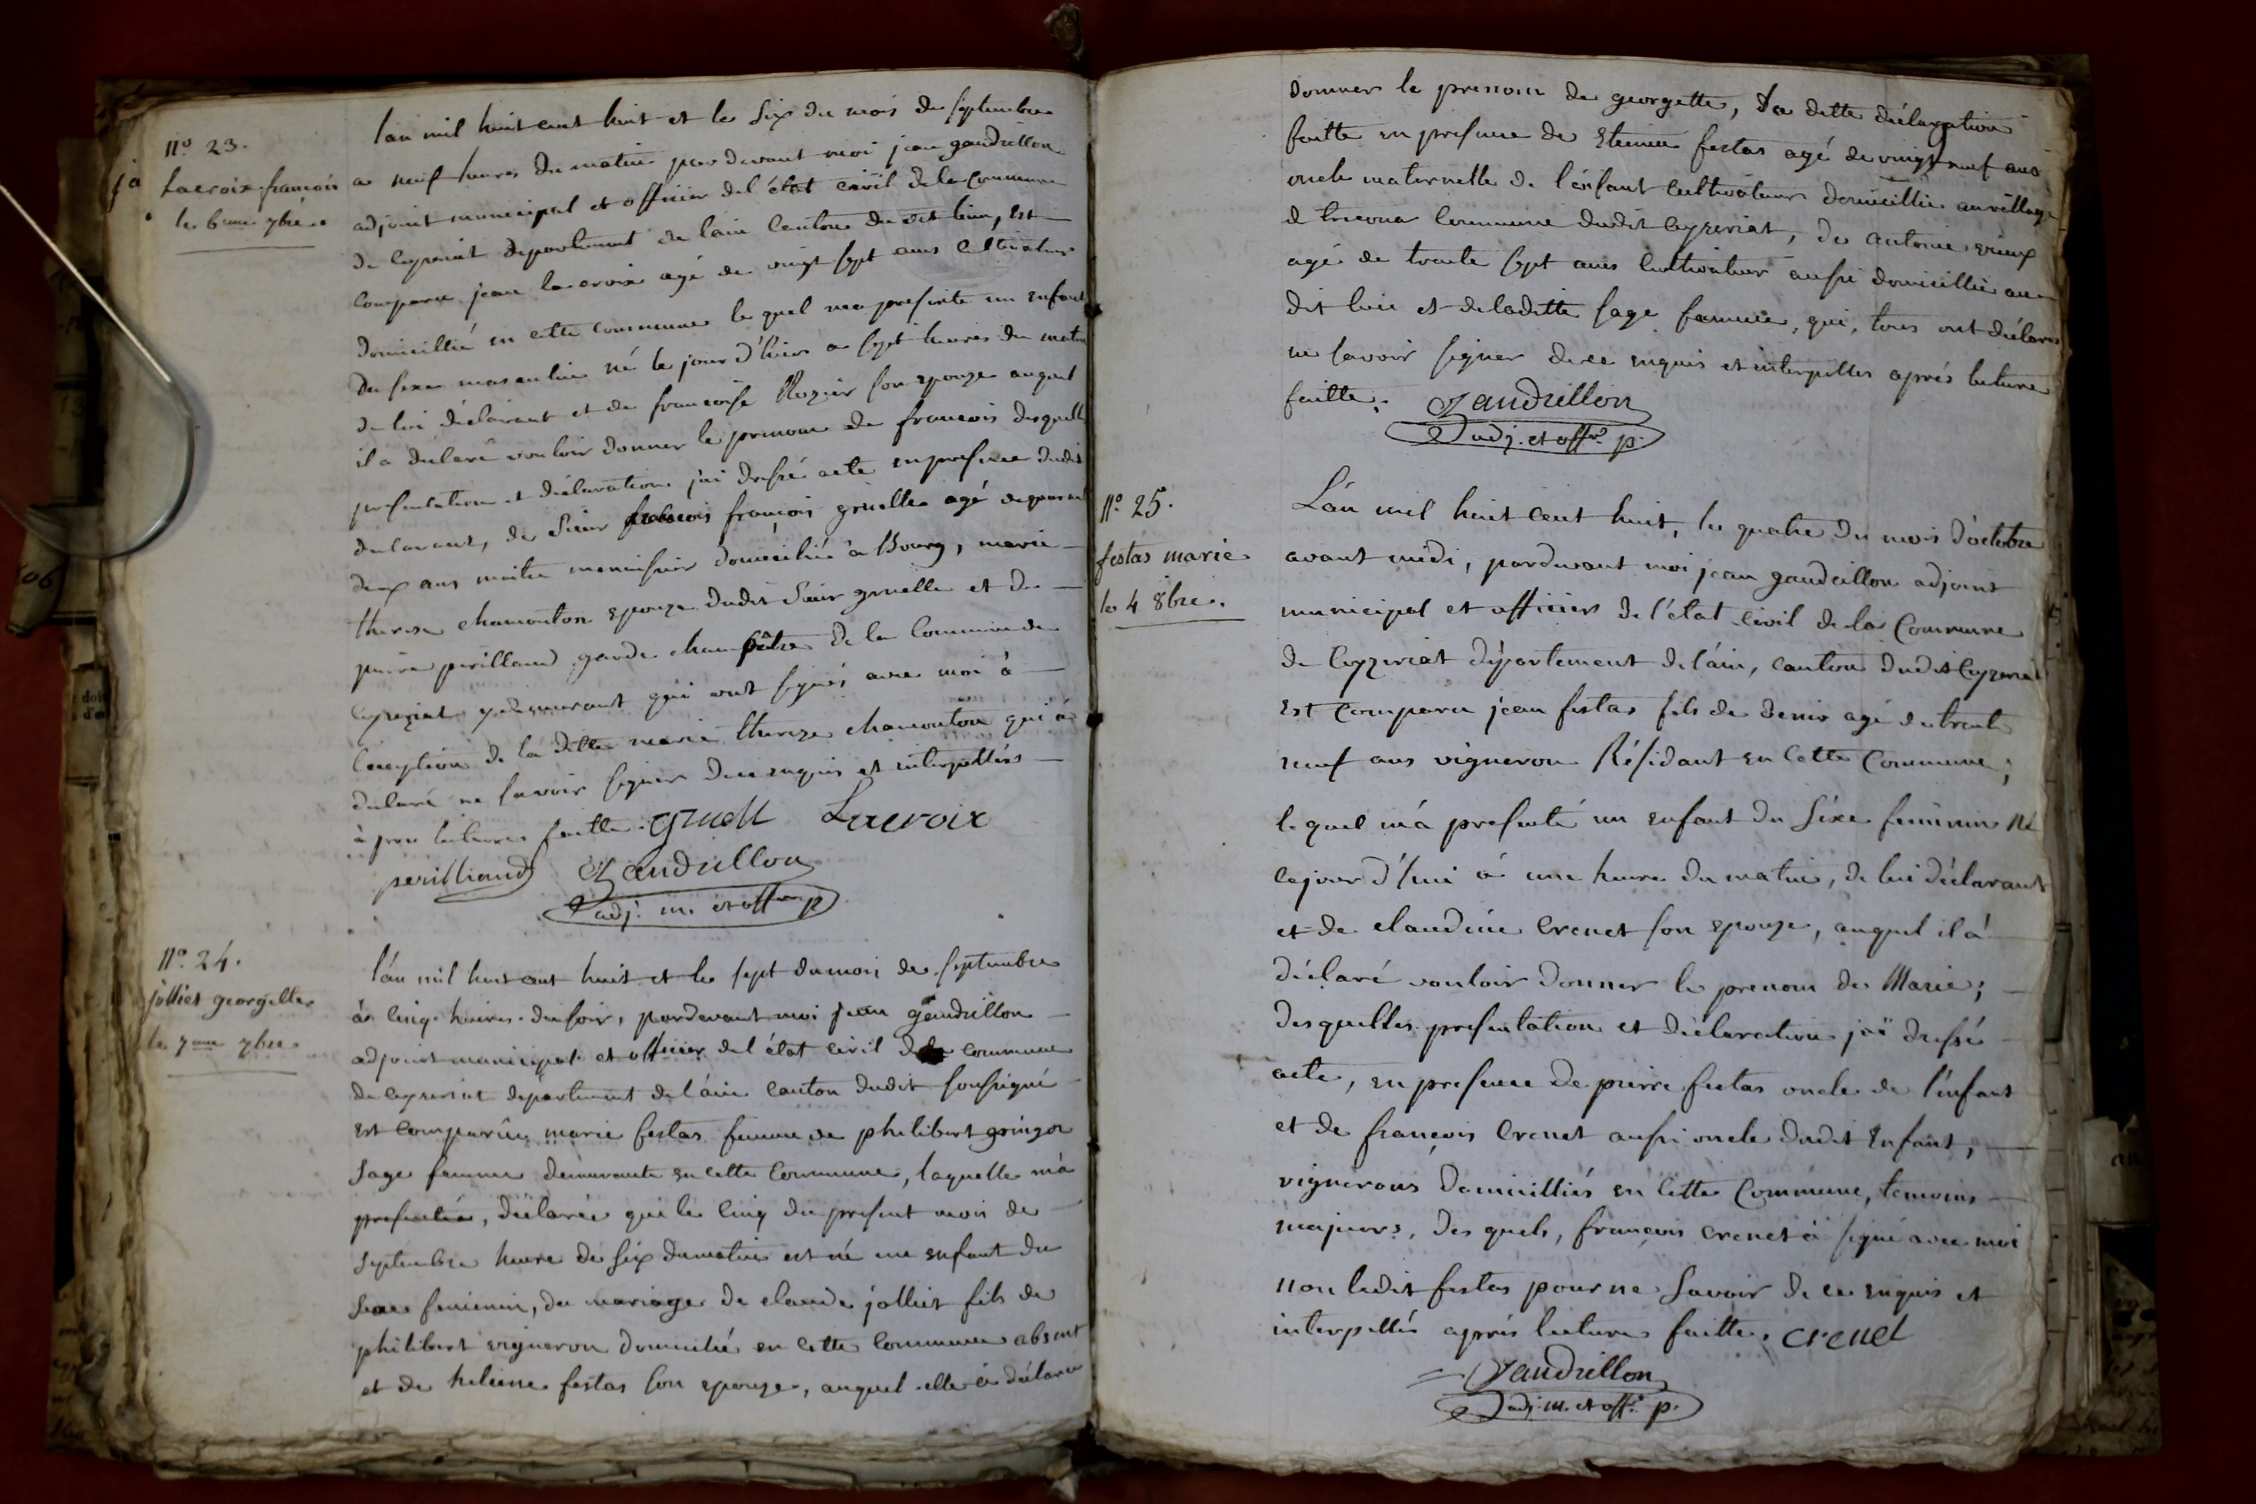 N.° 23.
Lacroix francois
le 6me 7bre.
lan mil huit cent huit et le six du mois de septembre
a neuf heures du matin par devant moi jean gaudrillon
adjoint municipal et officier del'état civil dela commune
de ceyzeriat departement de lain canton du dit lieu, est
comparu jean lacroix agé de vingt sept ans cultivateur
domicillié en cette commune le quel ma presenté un enfant
du sexe masculin né le jour d'hier a sept heures du matin
de lui déclarant et de francoise Rozier son epouze auquel
il a declaré vouloir donner le prenom de francois desquelles
presentation et déclaration j'ai dressé acte en presence dudit
declarant, de sieur françois gruelle agé de quarante
deux ans maitre menuisier domicilié à Bourg, marie
therese chamouton epouze dudit sieur gruelle et de
pierre perilland garde champêtre de la commune de
ceyzeriat y demeurant qui ont signés avec moi à
l'exception de la ditte marie therese chamouton qui a
declaré ne savoir signer de ce enquis et interpellés
après lecture faitte. gruelle Lacroix
perilliand Gaudrillon
adj. m. et offier p
N.° 24.
jolliet georgette
le 7me 7bre
l'an mil huit cent huit et le sept du mois de septembre
à cinq heures du soir, pardevant moi jean gaudrillon
adjoint municipal et officier del'état civil dela commune
de ceyzeriat departement de l'ain canton dudit soussigné
est comparûe marie festas femme de philibert gringoz
sage femme demeurante en cette commune, laquelle m'a
presentée, déclarée que le cinq du present mois de
septembre heure de six du matin est né un enfant du
sexe feminin, du mariage de claude jolliet fils de
philibert vigneron domicilié en cette commune absent
et de heleine festas son epouze, auquel elle a déclaré
donner le prenom de georgette, la ditte déclaration
faitte en presence de Etienne festas agé de vingt neuf ans
oncle maternelle de l'enfant cultivateur domicillié au village
de tricona commune dudit ceyzeriat, de antoine
agé de trente sept ans cultivateur aussi domicillié au
dit lieu et deladitte sage femme, qui, tous ont déclarés
ne savoir signer de ce enquis et interpellés aprés lecture
faitte. Gaudrillon
adj. et offer p.
N.° 25.
festas marie
le 4 8bre.
L'an mil huit cent huit, le quatre du mois d'octobre
avant midi, pardevant moi jean gaudrillon adjoint
municipal et officier de l'état civil de la Commune
de Ceyzeriat département de l'ain, canton dudit Ceyzeriat
Est comparu jean festas fils de Denis agé de trente
neuf ans vigneron Résidant en cette Commune;
le quel m'a presenté un enfant du sexe feminin né
cejour d'hui à une heure du matin, de lui déclarant
et de claudine Crenet son epouze, auquel il à
déclaré vouloir donner le prenom de Marie;
desquelles presentation et déclaration j'ai dressé
acte, en presence de pierre festas oncle de l'enfant
et de françois Crenet aussi oncle dudit Enfant,
vignerons domicilliés en cette Commune, temoins
majeurs, des quels, françois crenet à signé avec moi
non ledit festas pour ne savoir de ce enquis et
interpellé aprés lecture faitte. crenet
Gaudrillon
adj. m. et off. p.